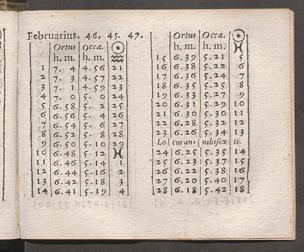 Februarius. 46. 45. 47.
Ortus Occa. ☉
h. m. h. m. ♒
1 7. 4 4.56 21
2 7. 3 4.57 22
3 7. 1 4.59 23
4 7. 0 5. 0 24
5 6.58 5. 2 25
6 6.56 5. 4 26
7 6.54 5. 6 27
8 6.52 5. 8 28
9 6.50 5.10 29
10 6.48 5.12 ♓
11 6.46 5.14 1
12 6.44 5.16 2
13 6.42 5.18 3
14 6.41 5.19 4
Ortus Occa. ☉
h. m. h. m. ♓
15 6.39 5.21 5
16 6.38 5.22 6
17 6.36 5.24 7
18 6.35 5.25 8
19 6.33 5.27 9
20 6.31 5.29 10
21 6.30 5.30 11
22 6.28 5.32 12
23 6.26 5.34 13
Lo cum an- nibisex ti.
24 6.25 5.35 14
25 6.23 5.37 15
26 6.22 5.38 16
27 6.20 5.40 17
28 6.18 5.42 18